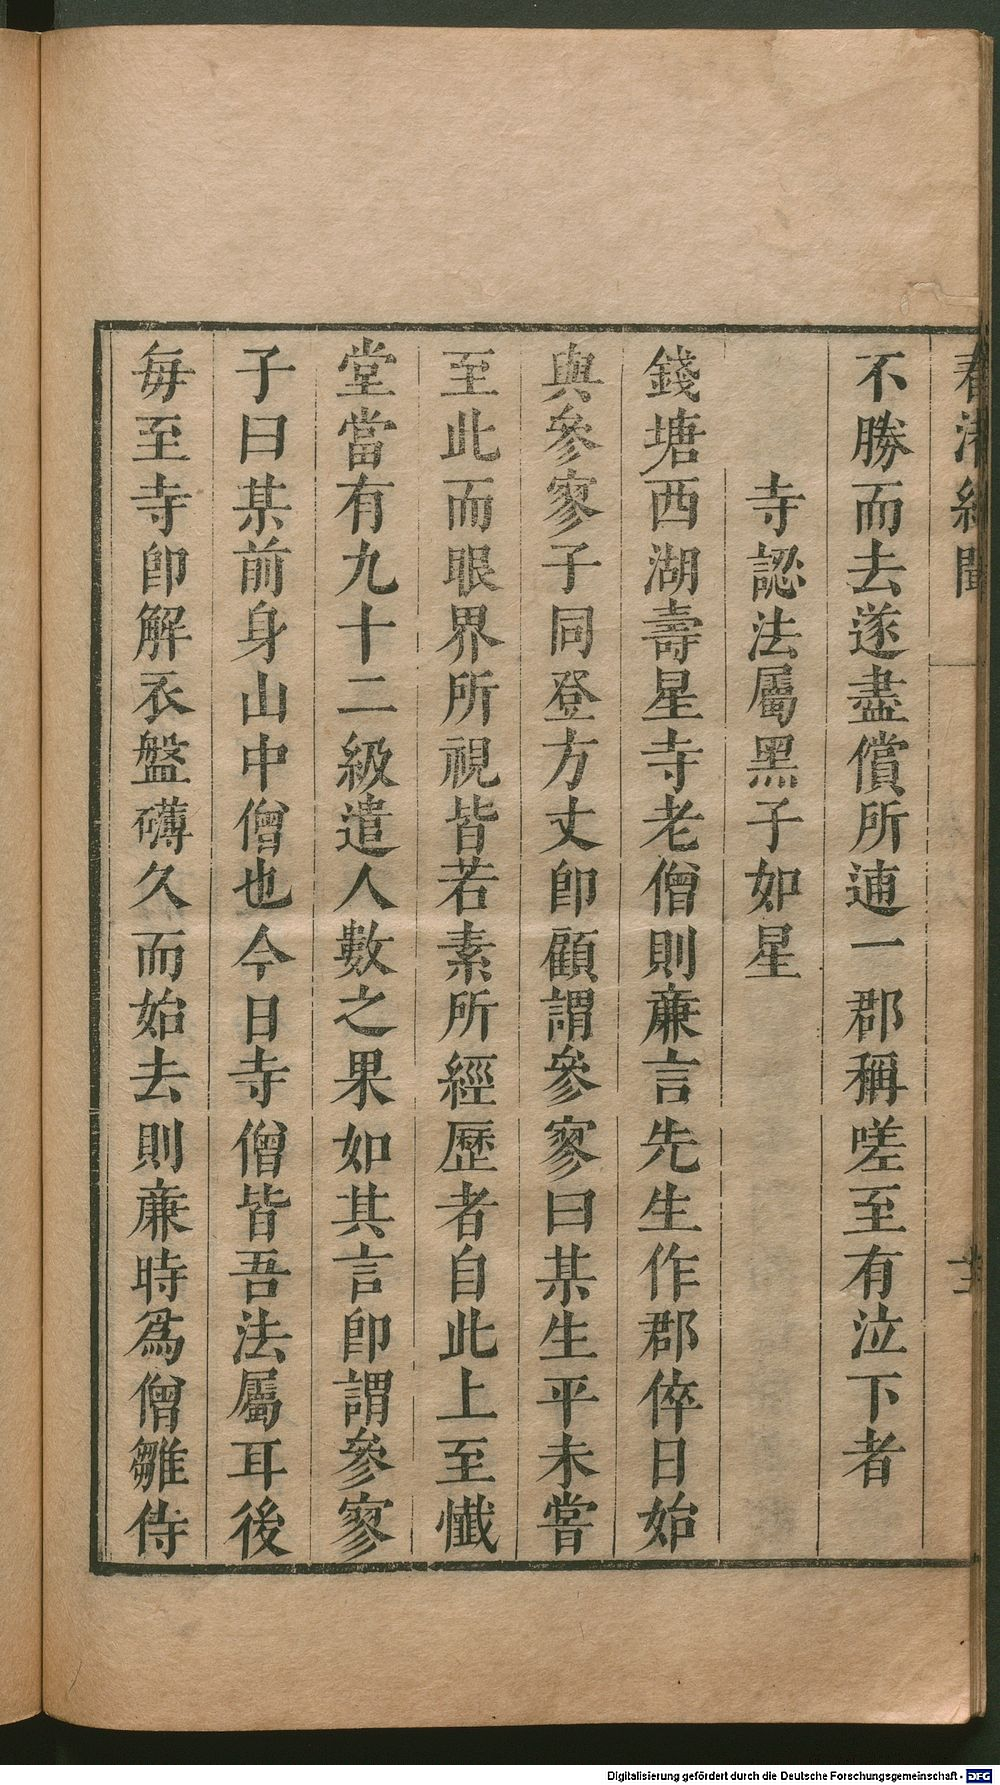 春渚紀聞
不勝而去遂盡償所逋一郡稱嗟至有泣下者
寺認法屬黑子如星
錢塘西湖壽星寺老僧則廉言先生作郡倅日始
與參寥子同登方丈卽顧謂參寥曰某生平未嘗
至此而眼界所視皆若素所經歷者自此上至懺
堂當有九十二級遣人數之果如其言卽謂參寥
子曰某前身山中僧也今日寺僧皆吾法屬耳後
每至寺卽解衣盤礴久而始去則廉時爲僧雛侍
Digitalisierung gefördert durch die Deutsche Forschungsgemeinschaft - DFG